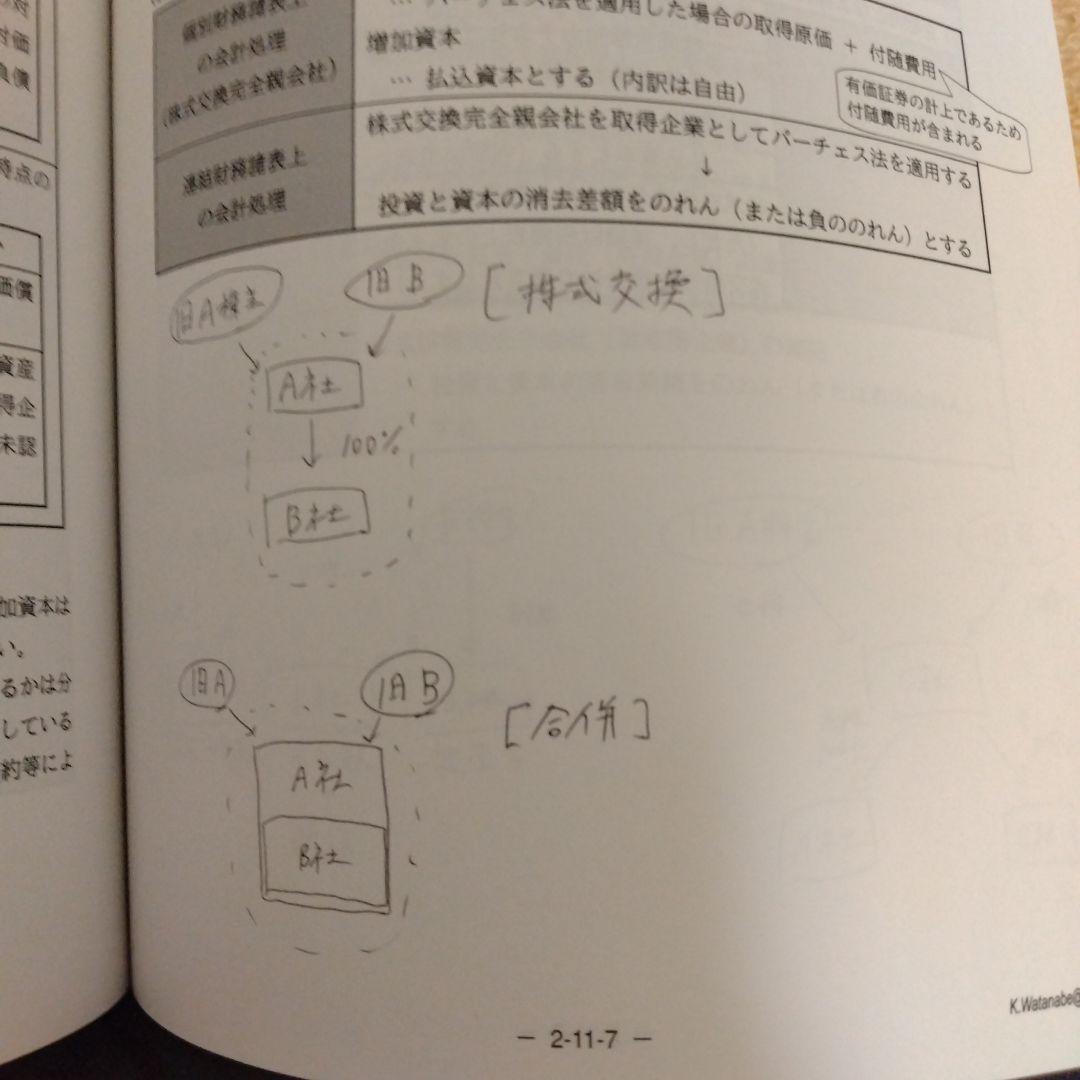 対
対価
負債
時点の
価償
資産
得企
未認
加資本は
い。
るかは分
している
約等によ
個別財務諸表上
の会計処理
(株式交換完全親会社)
… パーチェス法を適用した場合の取得原価 + 付随費用
増加資本
… 払込資本とする(内訳は自由)
有価証券の計上であるため
付随費用が含まれる
連結財務諸表上
の会計処理
株式交換完全親会社を取得企業としてパーチェス法を適用する
↓
投資と資本の消去差額をのれん(または負ののれん)とする
旧A株主
旧B
[株式交換]
A社
100%
B社
旧A
旧B
[合併]
A社
B社
K.Watanabe@
― 2-11-7 ―